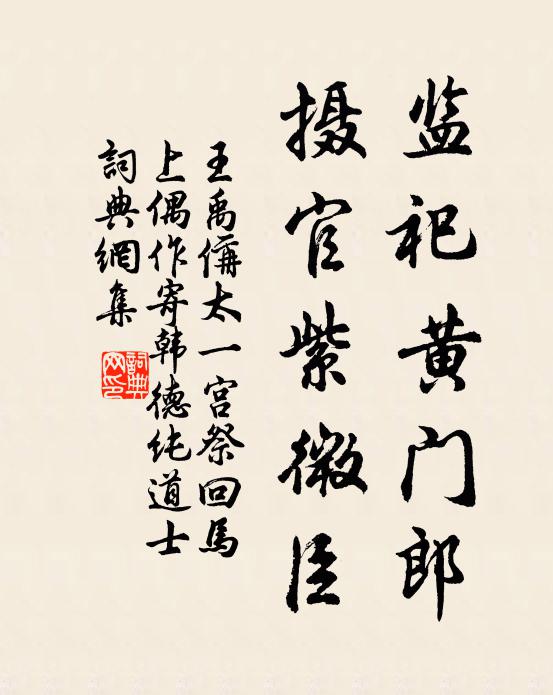 监祀黄门郎
摄官紫微臣
王禹偁太一宫祭回馬
上偶作寄韩德纯道士
詞典網集
詞典网印